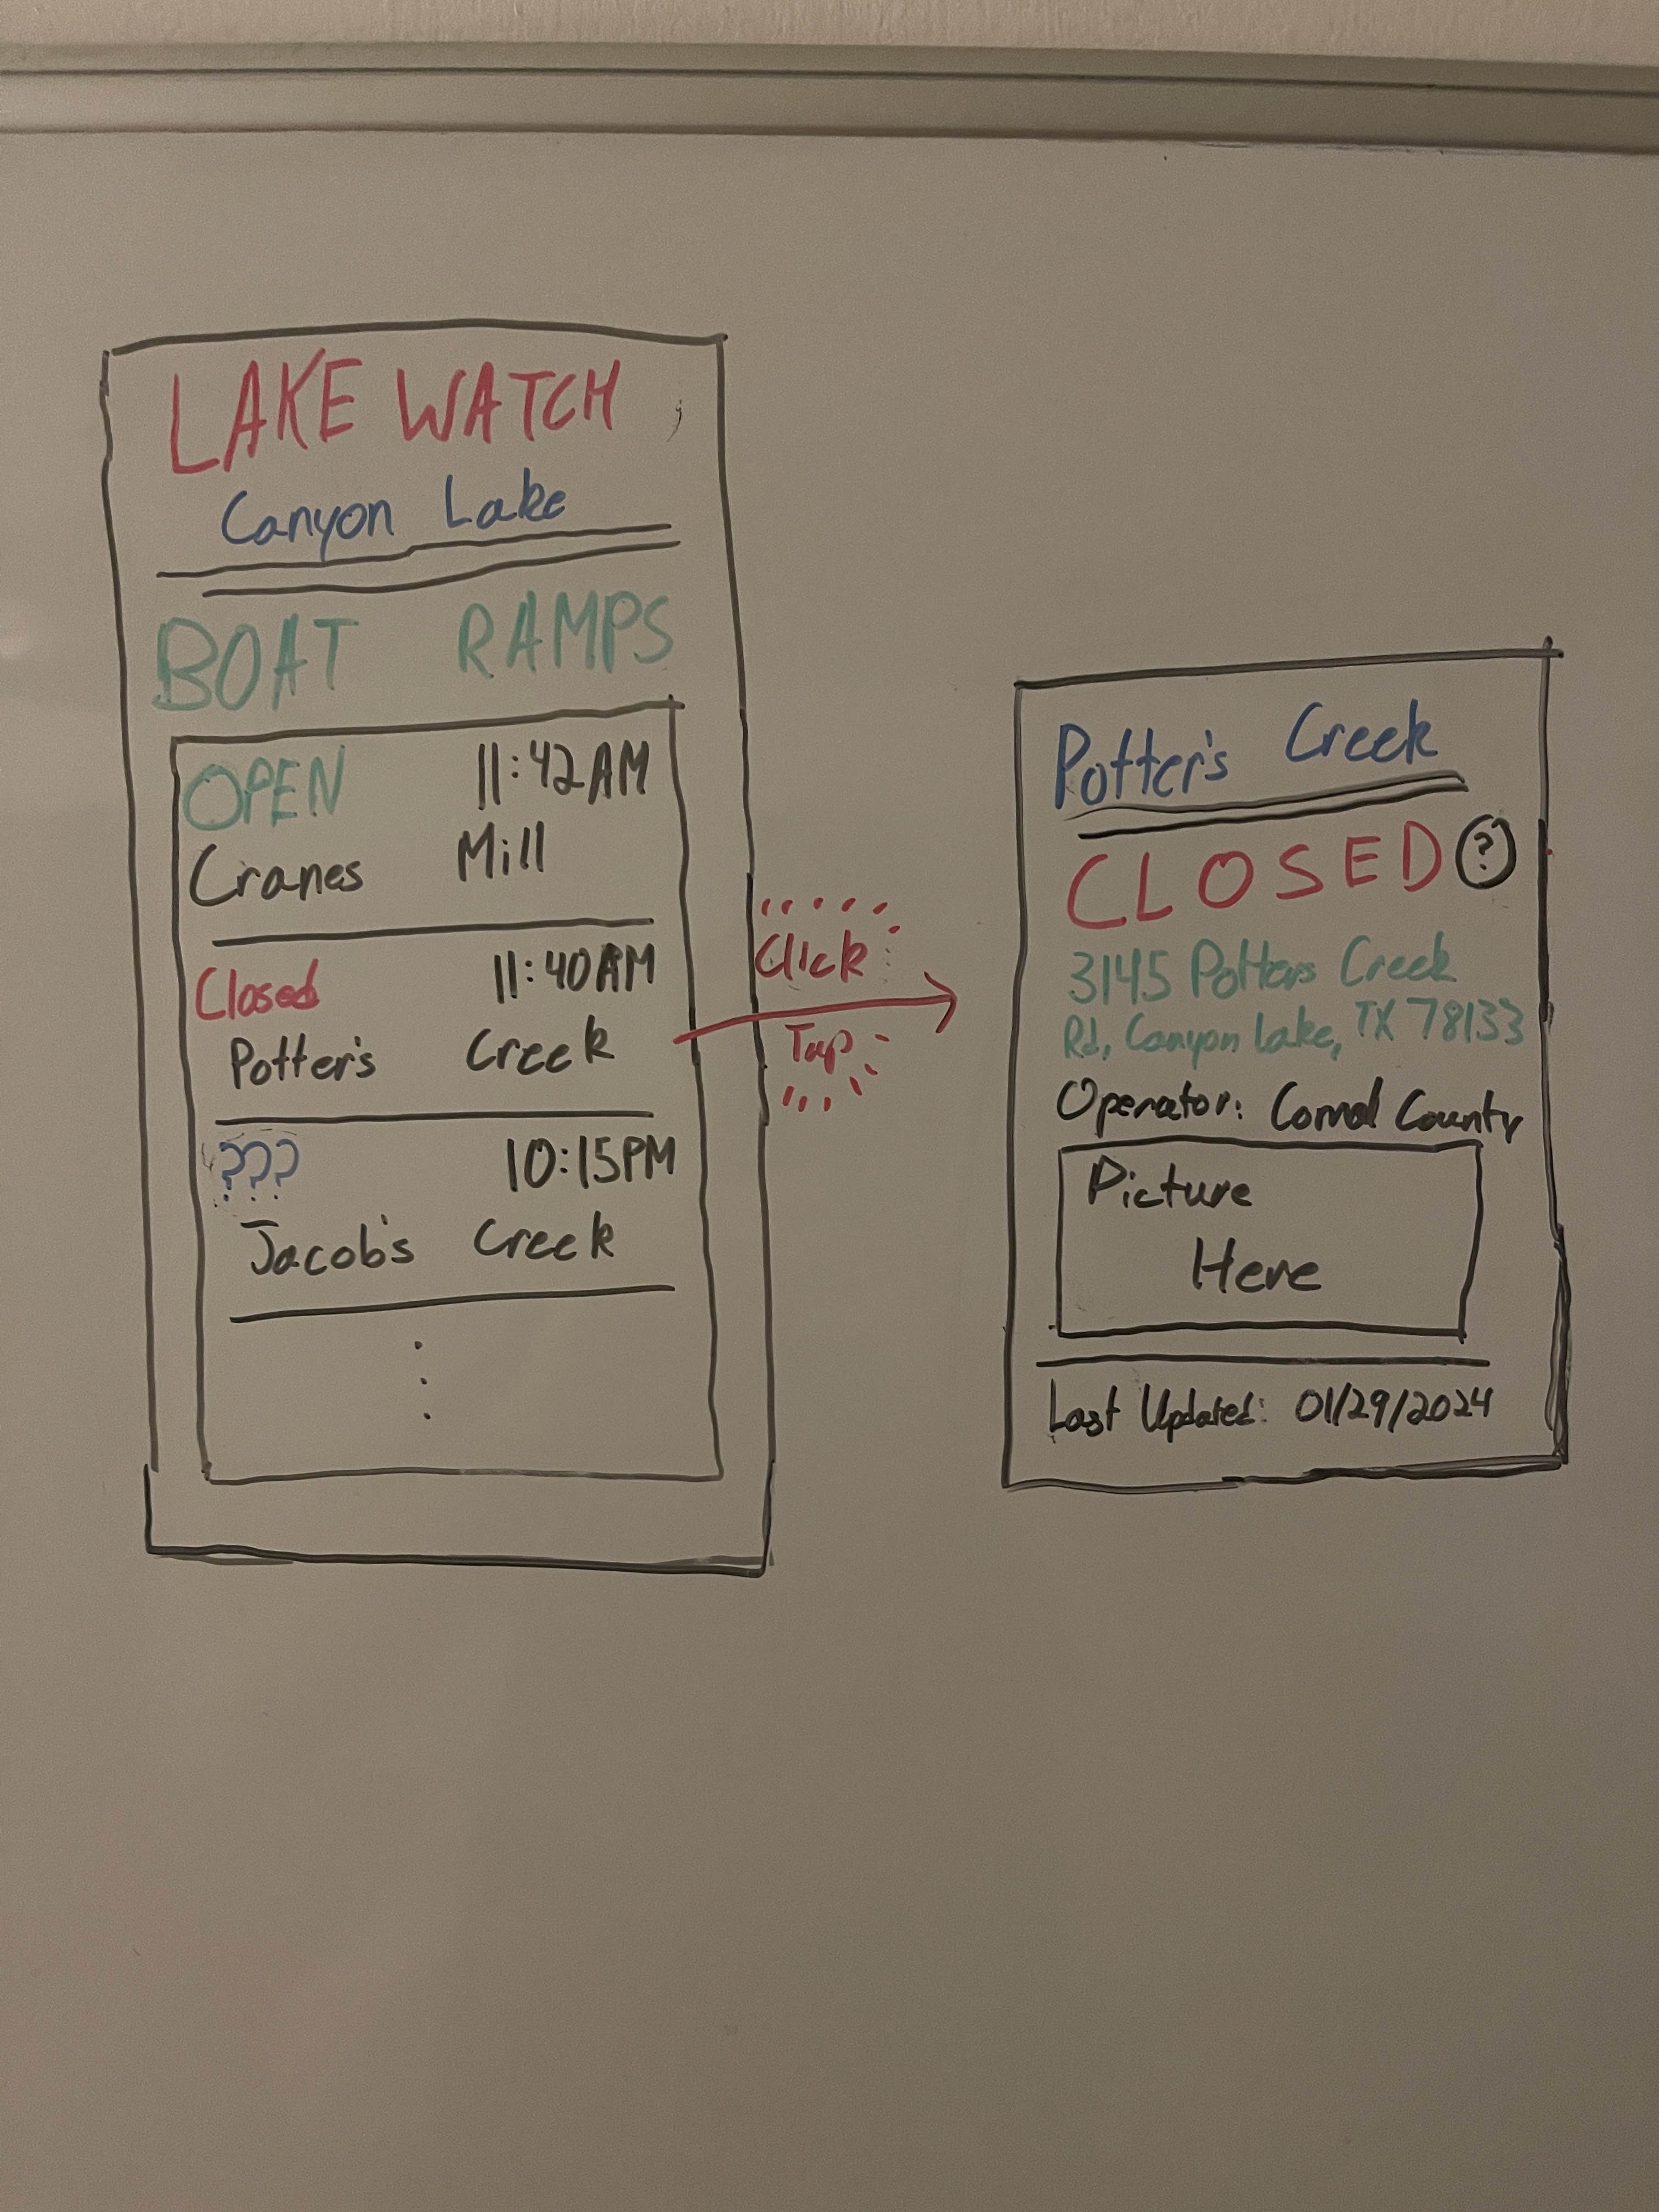 LAKE WATCH
Canyon Lake
BOAT RAMPS
OPEN 11:42AM
Cranes Mill
Closed 11:40AM
Potter's Creek
??? 10:15PM
Jacob's Creek
Click
Tap
Potter's Creek
CLOSED ?
3145 Potters Creek
Rd, Canyon Lake, TX 78133
Operator: Comal County
Picture
Here
Last Updated: 01/29/2024